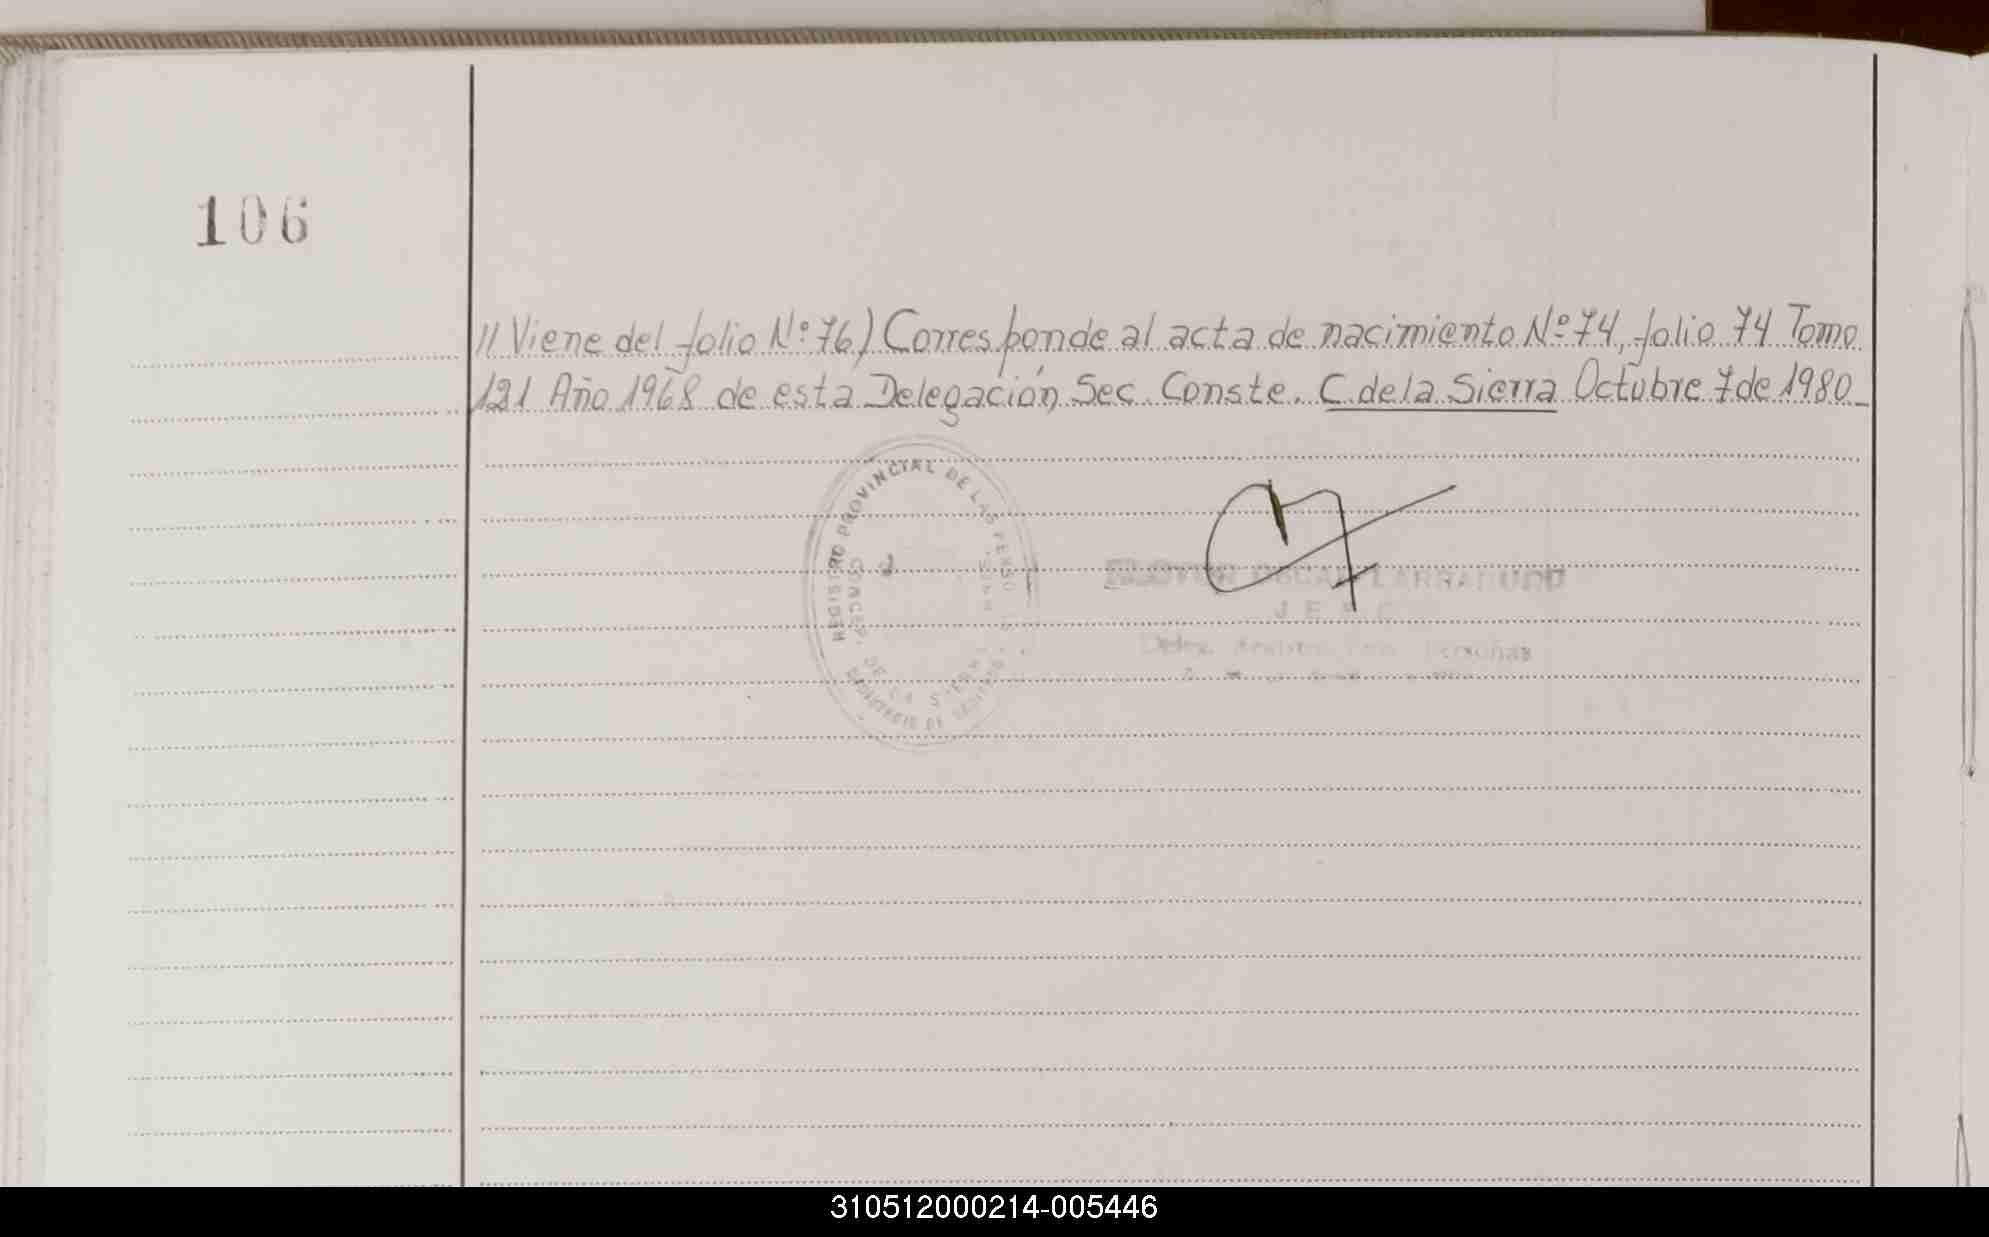 106
// Viene del folio Nº 76) Corresponde al acta de nacimiento Nº 74, folio 74 Tomo
121 Año 1968 de esta Delegación Sec. Conste. C. de la Sierra Octubre 7 de 1980_
REGISTRO PROVINCIAL DE LAS PERSONAS
CONCEP. DE LA SIERRA
J E F E
Personas
310512000214-005446